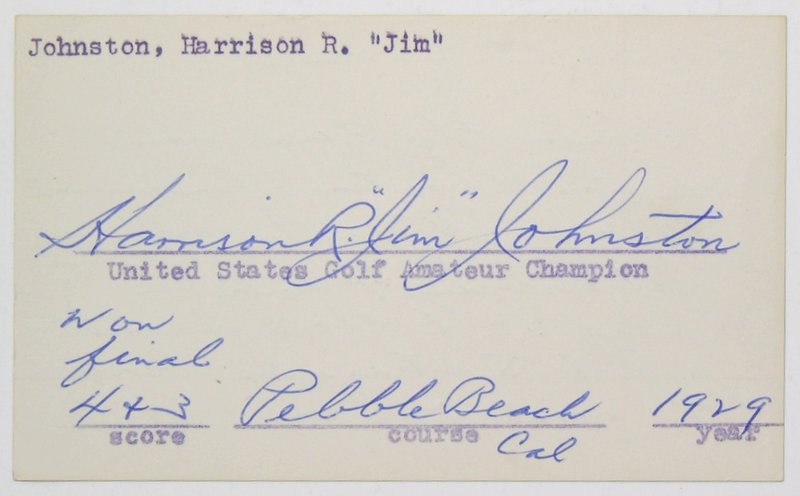 Johnston, Harrison R. "Jim"
Harrison R. "Jim" Johnston
United States Golf Amateur Champion
Won
final
4+3 Pebble Beach 1929
score course year
Cal